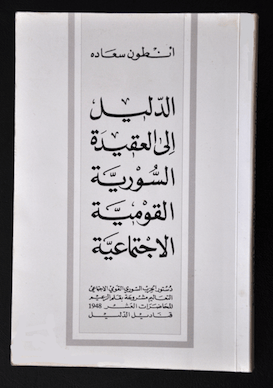 أنطون سعاده
الدليل
إلى العقيدة
السورية
القومية
الاجتماعية
دستور الحزب السوري القومي الاجتماعي
التعاليم مشروحة بقلم الزعيم
المحاضرات العشر 1948
قناديل الدليل